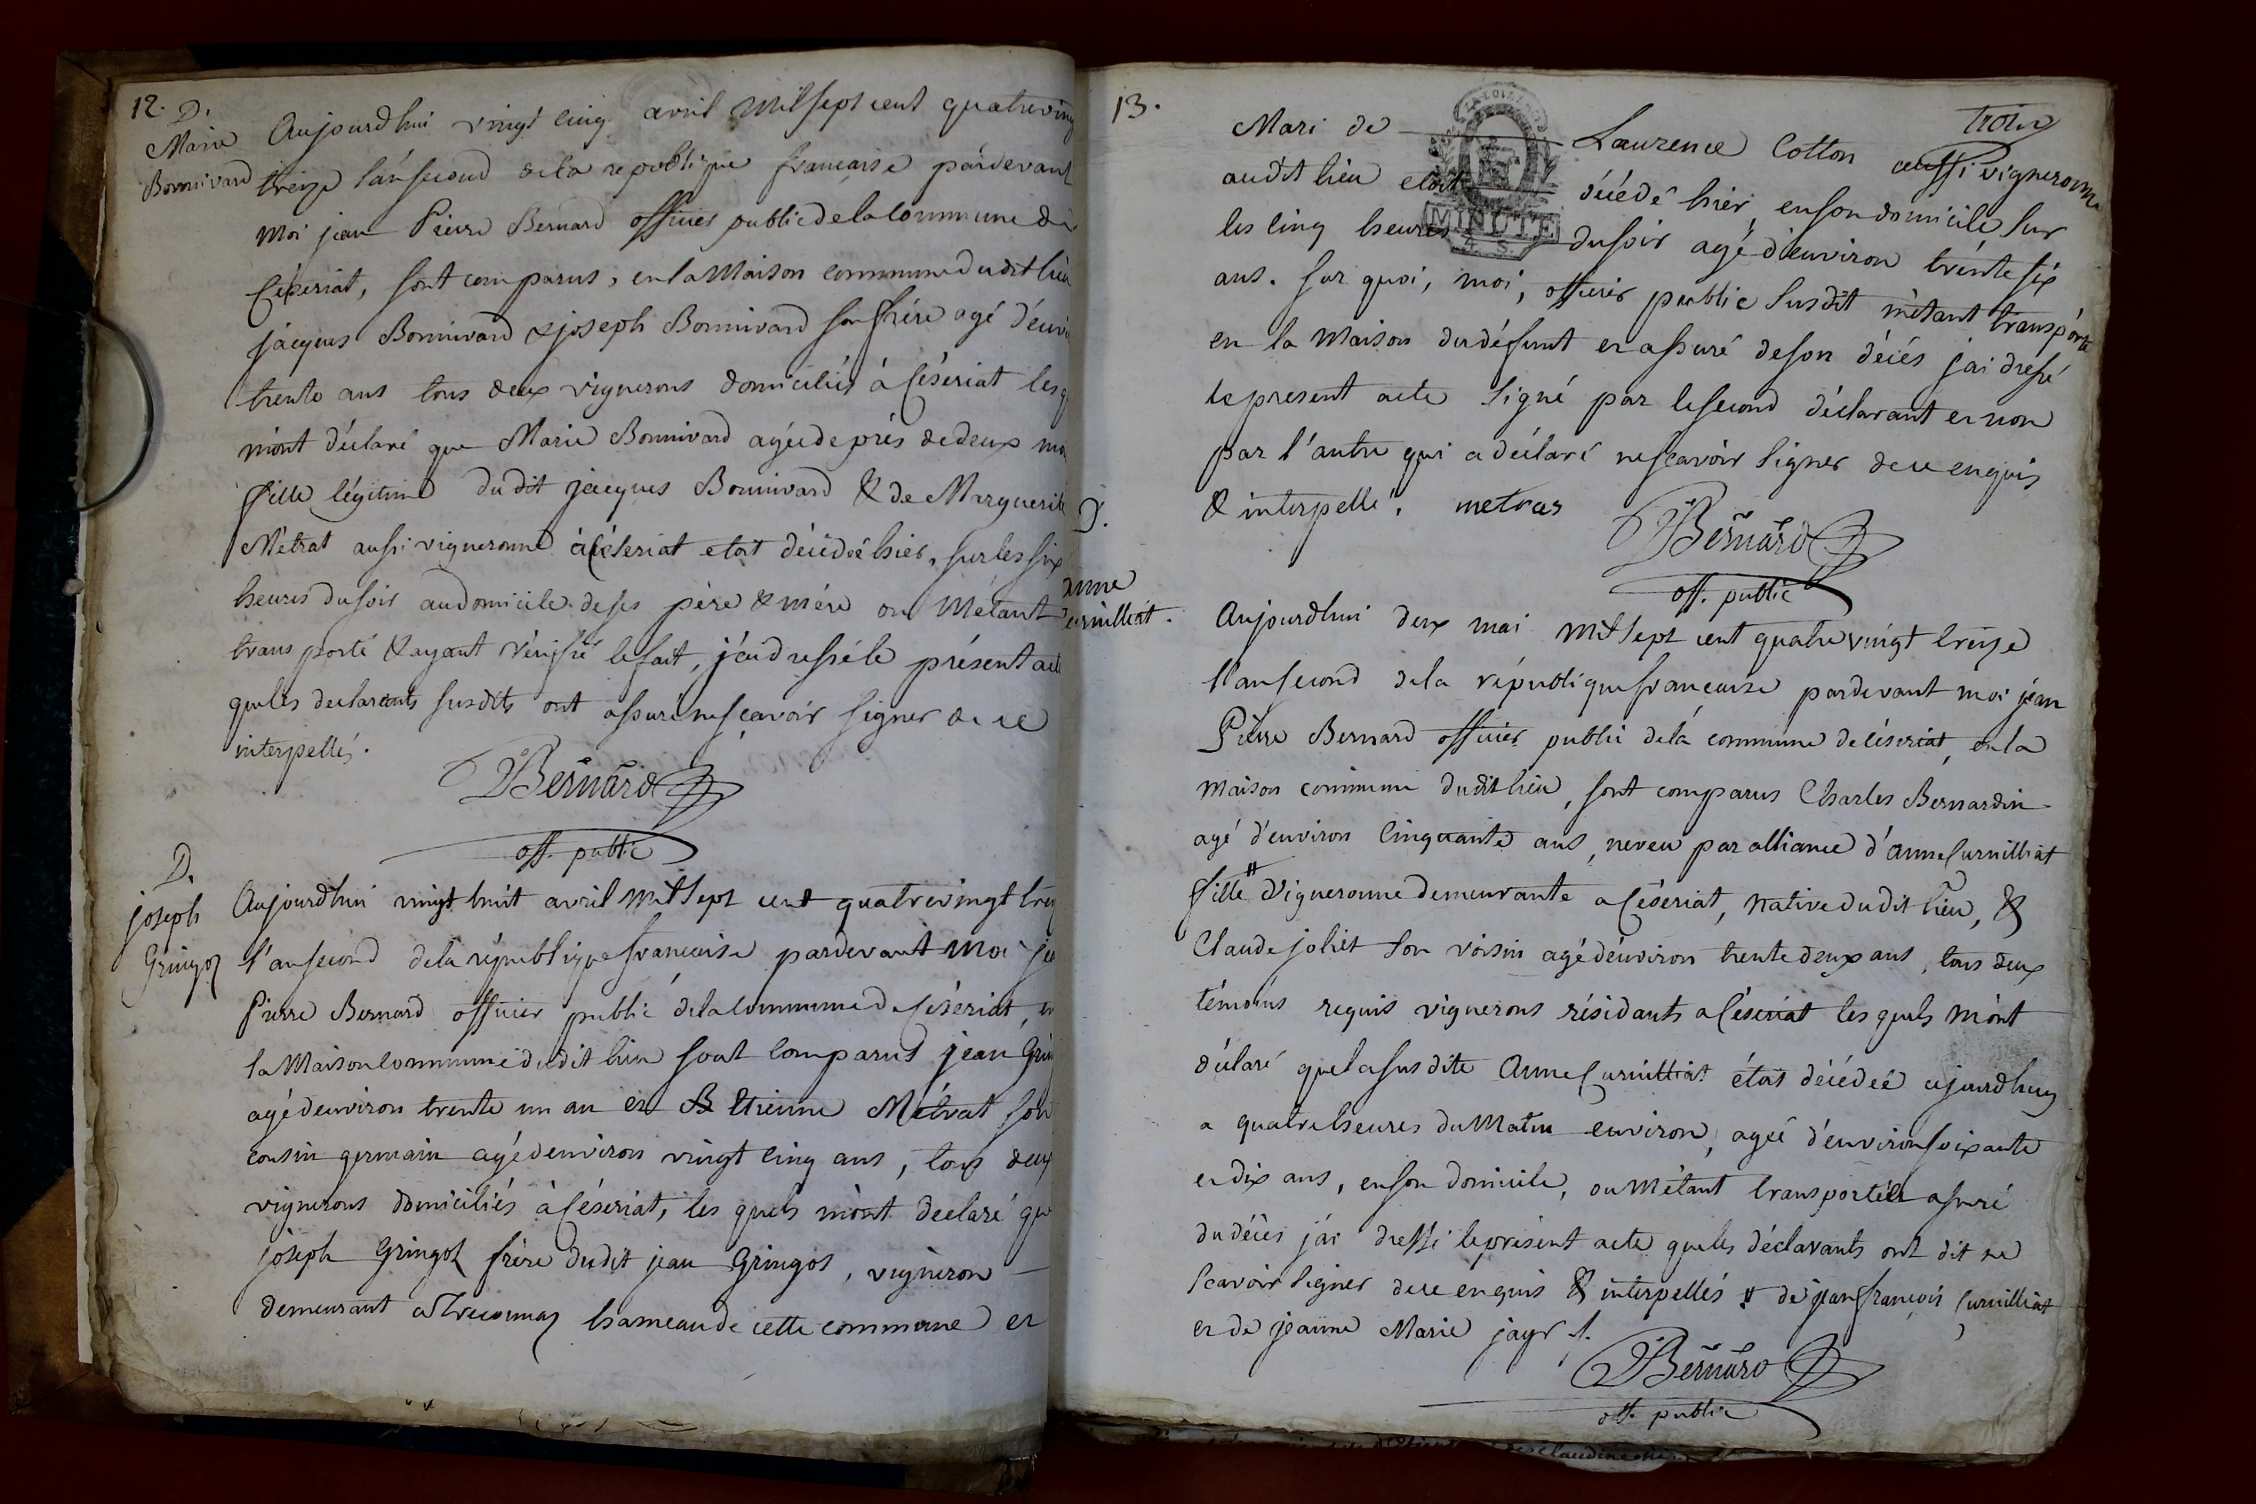 12.
D.
Marie
Bonnivard
Aujourdhui vingt cinq avril mil sept cent quatreving
treize l'an second de la republique francaise pardevant
moi jean Pierre Bernard officier public de la commune de
Céseriat, sont comparus, en la Maison commune dudit lieu
jacques Bonnivard & joseph Bonnivard son frére agé d'envi
trente ans tous deux vignerons domiciliés à Céseriat les q
m'ont déclaré que Marie Bonnivard agée de près de deux mo
fille légitime dudit jacques Bonnivard & de Marguerite
Métrat aussi vigneronne à Céseriat etoit décédée hier, sur les six
heures du soir au domicile de ses père & mére ou M'étant
transporté & ayant vérifié le fait, j'ai dressé le présent acte
que les declarants susdits ont assuré ne sçavoir signer de ce
interpellés.
JPBernard
off. public
D.
joseph
Gringoz
Aujourdhui vingt huit avril mil sept cent quatrevingt trei
l'an second de la république francaise pardevant moi je
Pierre Bernard officier public de la commune de Céseriat, en
la Maison commune dudit lieu sont comparus jean Grin
agé denviron trente un an et Etienne Métrat son
cousin germain agé denviron vingt cinq ans, tous deux
vignerons domiciliés à Céseriat, les quels m'ont declaré qu
joseph Gringoz frère dudit jean Gringoz, vigneron
demeurant a hameau de cette commune et
13.
trois
Mari de Laurence Cotton aussi vigneronne
audit lieu etoit décédé hier, en son domicile sur
les cinq heures du soir agé d'environ trénte six
MINUTE
4. S.
ans. sur quoi, moi, officier public susdit m'étant transporté
en la Maison du défunt et assuré de son décés j'ai dressé
le present acte signé par le second déclarant et non
par l'autre qui a déclaré ne scavoir signer de ce enquis
& interpellé. metras
JPBernard
off. public
D.
anne
Curnilliat.
Aujourdhui deux mai mil sept cent quatre vingt treize
l'an second de la république francaise pardevant moi jean
Pierre Bernard officier public de la commune de Céseriat, en la
maison commune dudit lieu, sont comparus Charles Bernardin
agé d'environ cinquante ans, neveu par alliance d'anne Curnilliat
fille # vigneronne demeurante a Céseriat, native dudit lieu, &
Claude joliet son voisin agé d'environ trente deux ans, tous deux
témoins requis vignerons résidants a Céseriat les quels m'ont
déclaré que la susdite Anne Curnilliat étoit décédée ajourdhuy
a quatre heures du Matin environ, agée d'environ soixante
et dix ans, en son domicile, ou M'étant transporté et assuré
du décès j'ai dressé le présent acte que les déclarants ont dit ne
scavoir signer de ce enquis & interpellés # de jean françois Curnilliat
et de jeanne Marie jayr
JPBernard
off. public